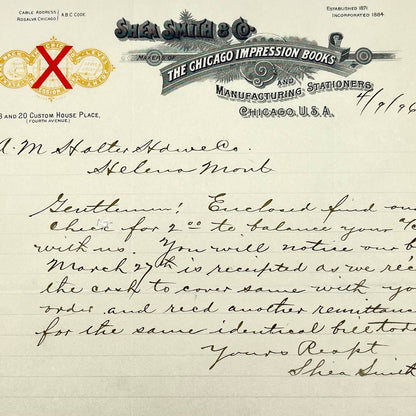 CABLE ADDRESS
ROSALVA CHICAGO
A B C CODE.
ESTABLISHED 1871
INCORPORATED 1884.
SHEA SMITH & CO.
MAKERS OF
THE CHICAGO IMPRESSION BOOKS
AND
MANUFACTURING STATIONERS
CHICAGO, U.S.A.
AND 20 CUSTOM HOUSE PLACE,
(FOURTH AVENUE)
4/9/96
A. M Holter Hdwe Co.
Helena Mont
Gentlemen! Enclosed find our
check for 2.00 to balance your a/c
with us. You will notice our b
March 27th is receipted as we rec
the cash to cover same with yo
order and recd another remittan
for the same identical bill today
Yours Respt
Shea Smith